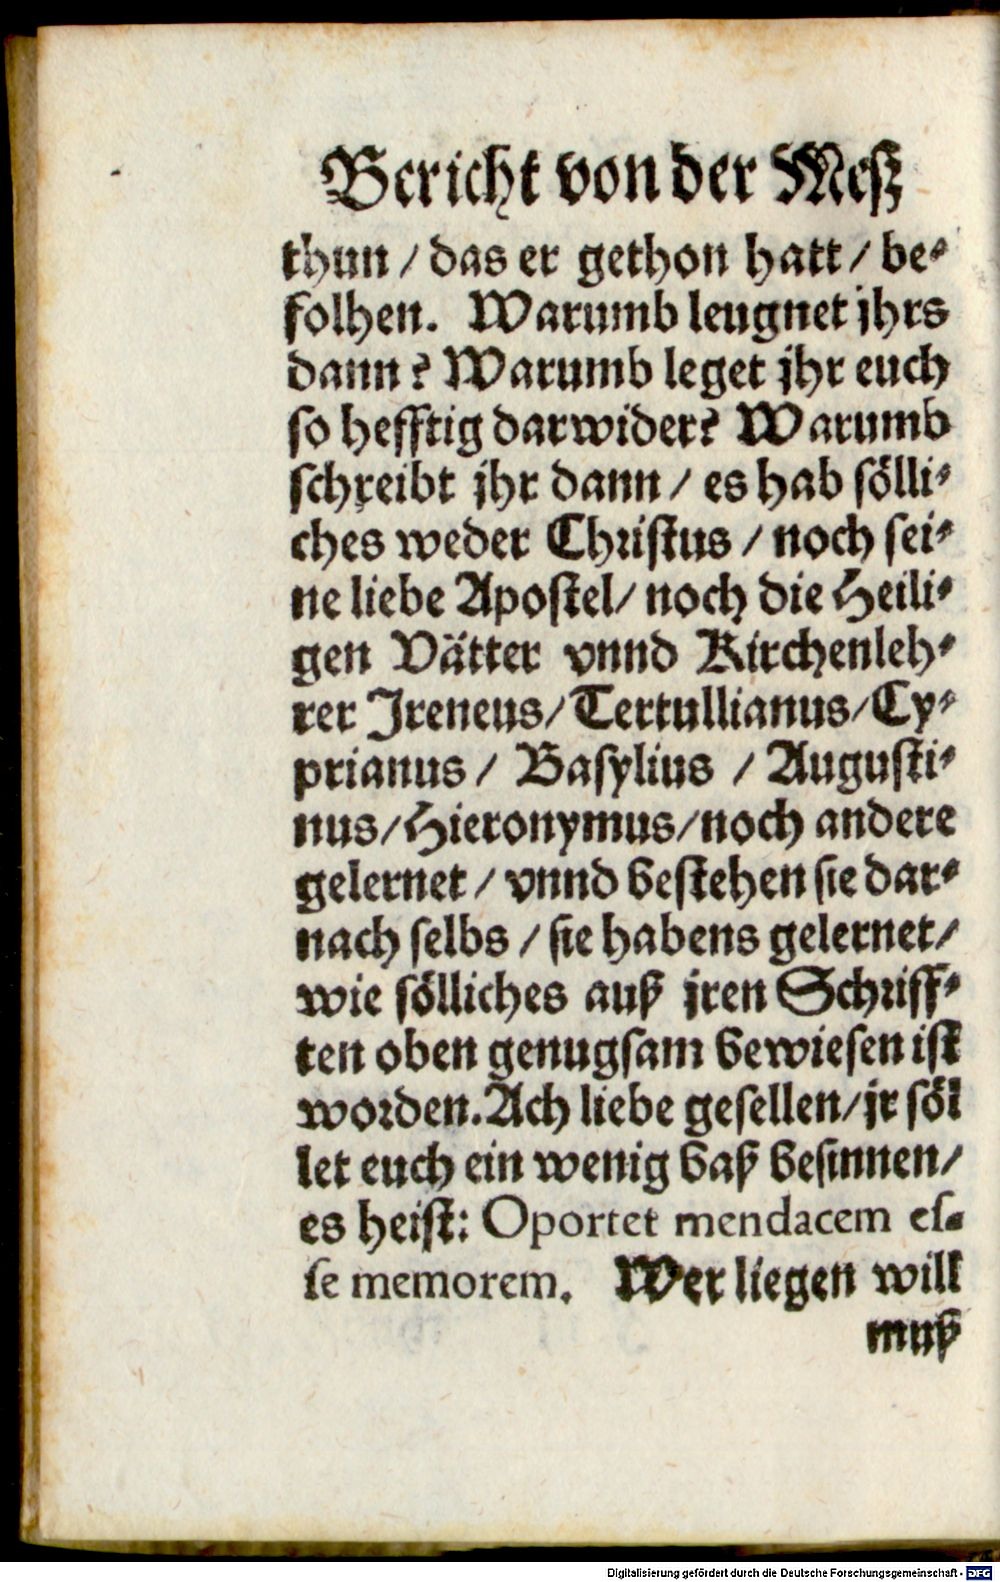 Bericht von der Meß
thun / das er gethon hatt / be-
folhen. Warumb leugnet jhrs
dann? Warumb leget jhr euch
so hefftig darwider? Warumb
schreibt jhr dann / es hab sölli-
ches weder Christus / noch sei-
ne liebe Apostel/ noch die Heili-
gen Vätter vnnd Kirchenleh-
rer Jreneus/ Tertullianus/ Cy-
prianus / Basylius / Augusti-
nus/ Hieronymus/ noch andere
gelernet / vnnd bestehen sie dar-
nach selbs / sie habens gelernet/
wie sölliches auß jren Schriff-
ten oben genugsam bewiesen ist
worden. Ach liebe gesellen/ jr söl
let euch ein wenig baß besinnen/
es heist: Oportet mendacem es-
se memorem. Wer liegen will
muß
Digitalisierung gefördert durch die Deutsche Forschungsgemeinschaft - DFG